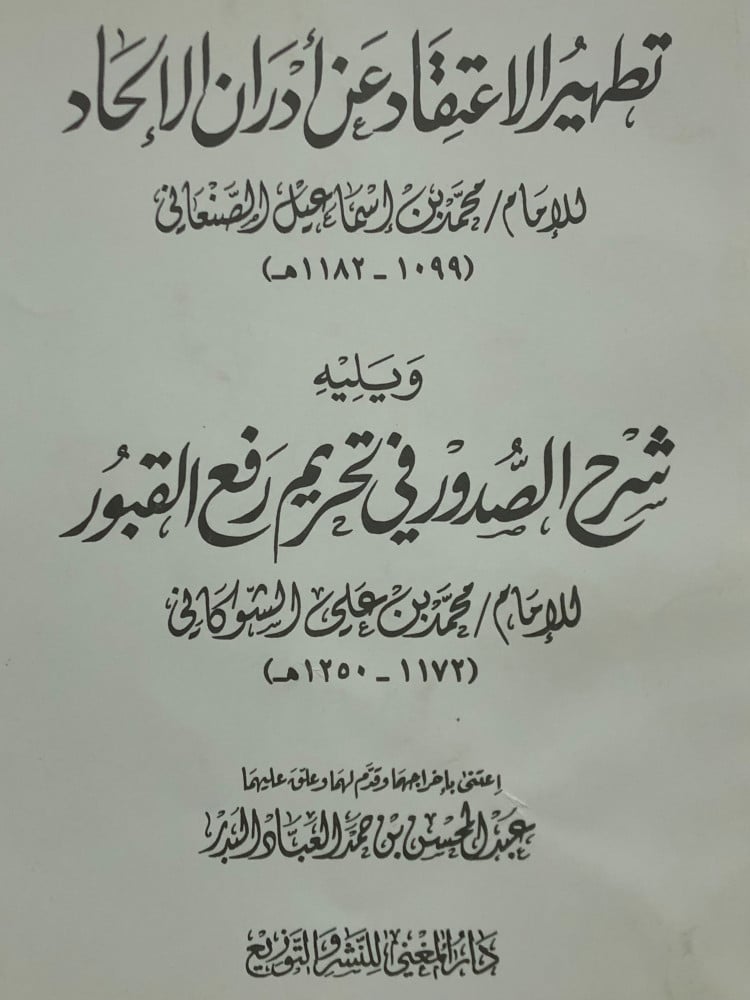 تطهير الاعتقاد عن أدران الإلحاد
للإمام / محمد بن إسماعيل الصنعاني
(١٠٩٩ - ١١٨٢هـ)
وَيَلِيْهِ
شرح الصدور في تحريم رفع القبور
للإمام / محمد بن علي الشوكاني
(١١٧٣ - ١٢٥٠هـ)
اعتنى بإخراجهما وقدم لهما وعلق عليهما
عبد المحسن بن حمد العباد البدر
دار المغني للنشر والتوزيع